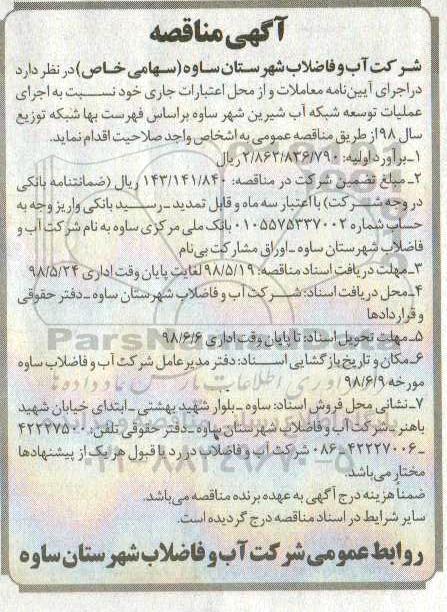 آگهی مناقصه
شرکت آب و فاضلاب شهرستان ساوه (سهامی خاص) در نظر دارد
در اجرای آیین‌نامه معاملات و از محل اعتبارات جاری خود نسبت به اجرای
عملیات توسعه شبکه آب شیرین شهر ساوه براساس فهرست بها شبکه توزیع
سال ۹۸ از طریق مناقصه عمومی به اشخاص واجد صلاحیت اقدام نماید.
۱ـ برآورد اولیه: ۲/۸۶۲/۸۳۶/۷۹۰ ریال
۲ـ مبلغ تضمین شرکت در مناقصه: ۱۴۳/۱۴۱/۸۴۰ ریال (ضمانتنامه بانکی
در وجه شرکت) با اعتبار سه ماه و قابل تمدید ـ رسید بانکی واریز وجه به
حساب شماره ۰۱۰۵۵۷۵۳۳۷۰۰۲ بانک ملی مرکزی ساوه به نام شرکت آب و
فاضلاب شهرستان ساوه ـ اوراق مشارکت بی‌نام
۳ـ مهلت دریافت اسناد مناقصه: ۹۸/۵/۱۹ لغایت پایان وقت اداری ۹۸/۵/۲۴
۴ـ محل دریافت اسناد: شرکت آب و فاضلاب شهرستان ساوه ـ دفتر حقوقی
و قراردادها
۵ـ مهلت تحویل اسناد: تا پایان وقت اداری ۹۸/۶/۶
۶ـ مکان و تاریخ بازگشایی اسناد: دفتر مدیرعامل شرکت آب و فاضلاب ساوه
مورخه ۹۸/۶/۹
۷ـ نشانی محل فروش اسناد: ساوه ـ بلوار شهید بهشتی ـ ابتدای خیابان شهید
باهنر ـ شرکت آب و فاضلاب شهرستان ساوه ـ دفتر حقوقی تلفن: ۴۲۲۲۷۵۰۰
ـ ۴۲۲۲۷۰۰۶ـ۰۸۶ شرکت آب و فاضلاب در رد یا قبول هر یک از پیشنهادها
مختار می‌باشد.
ضمناً هزینه درج آگهی به عهده برنده مناقصه می‌باشد.
سایر شرایط در اسناد مناقصه درج گردیده است.
روابط عمومی شرکت آب و فاضلاب شهرستان ساوه